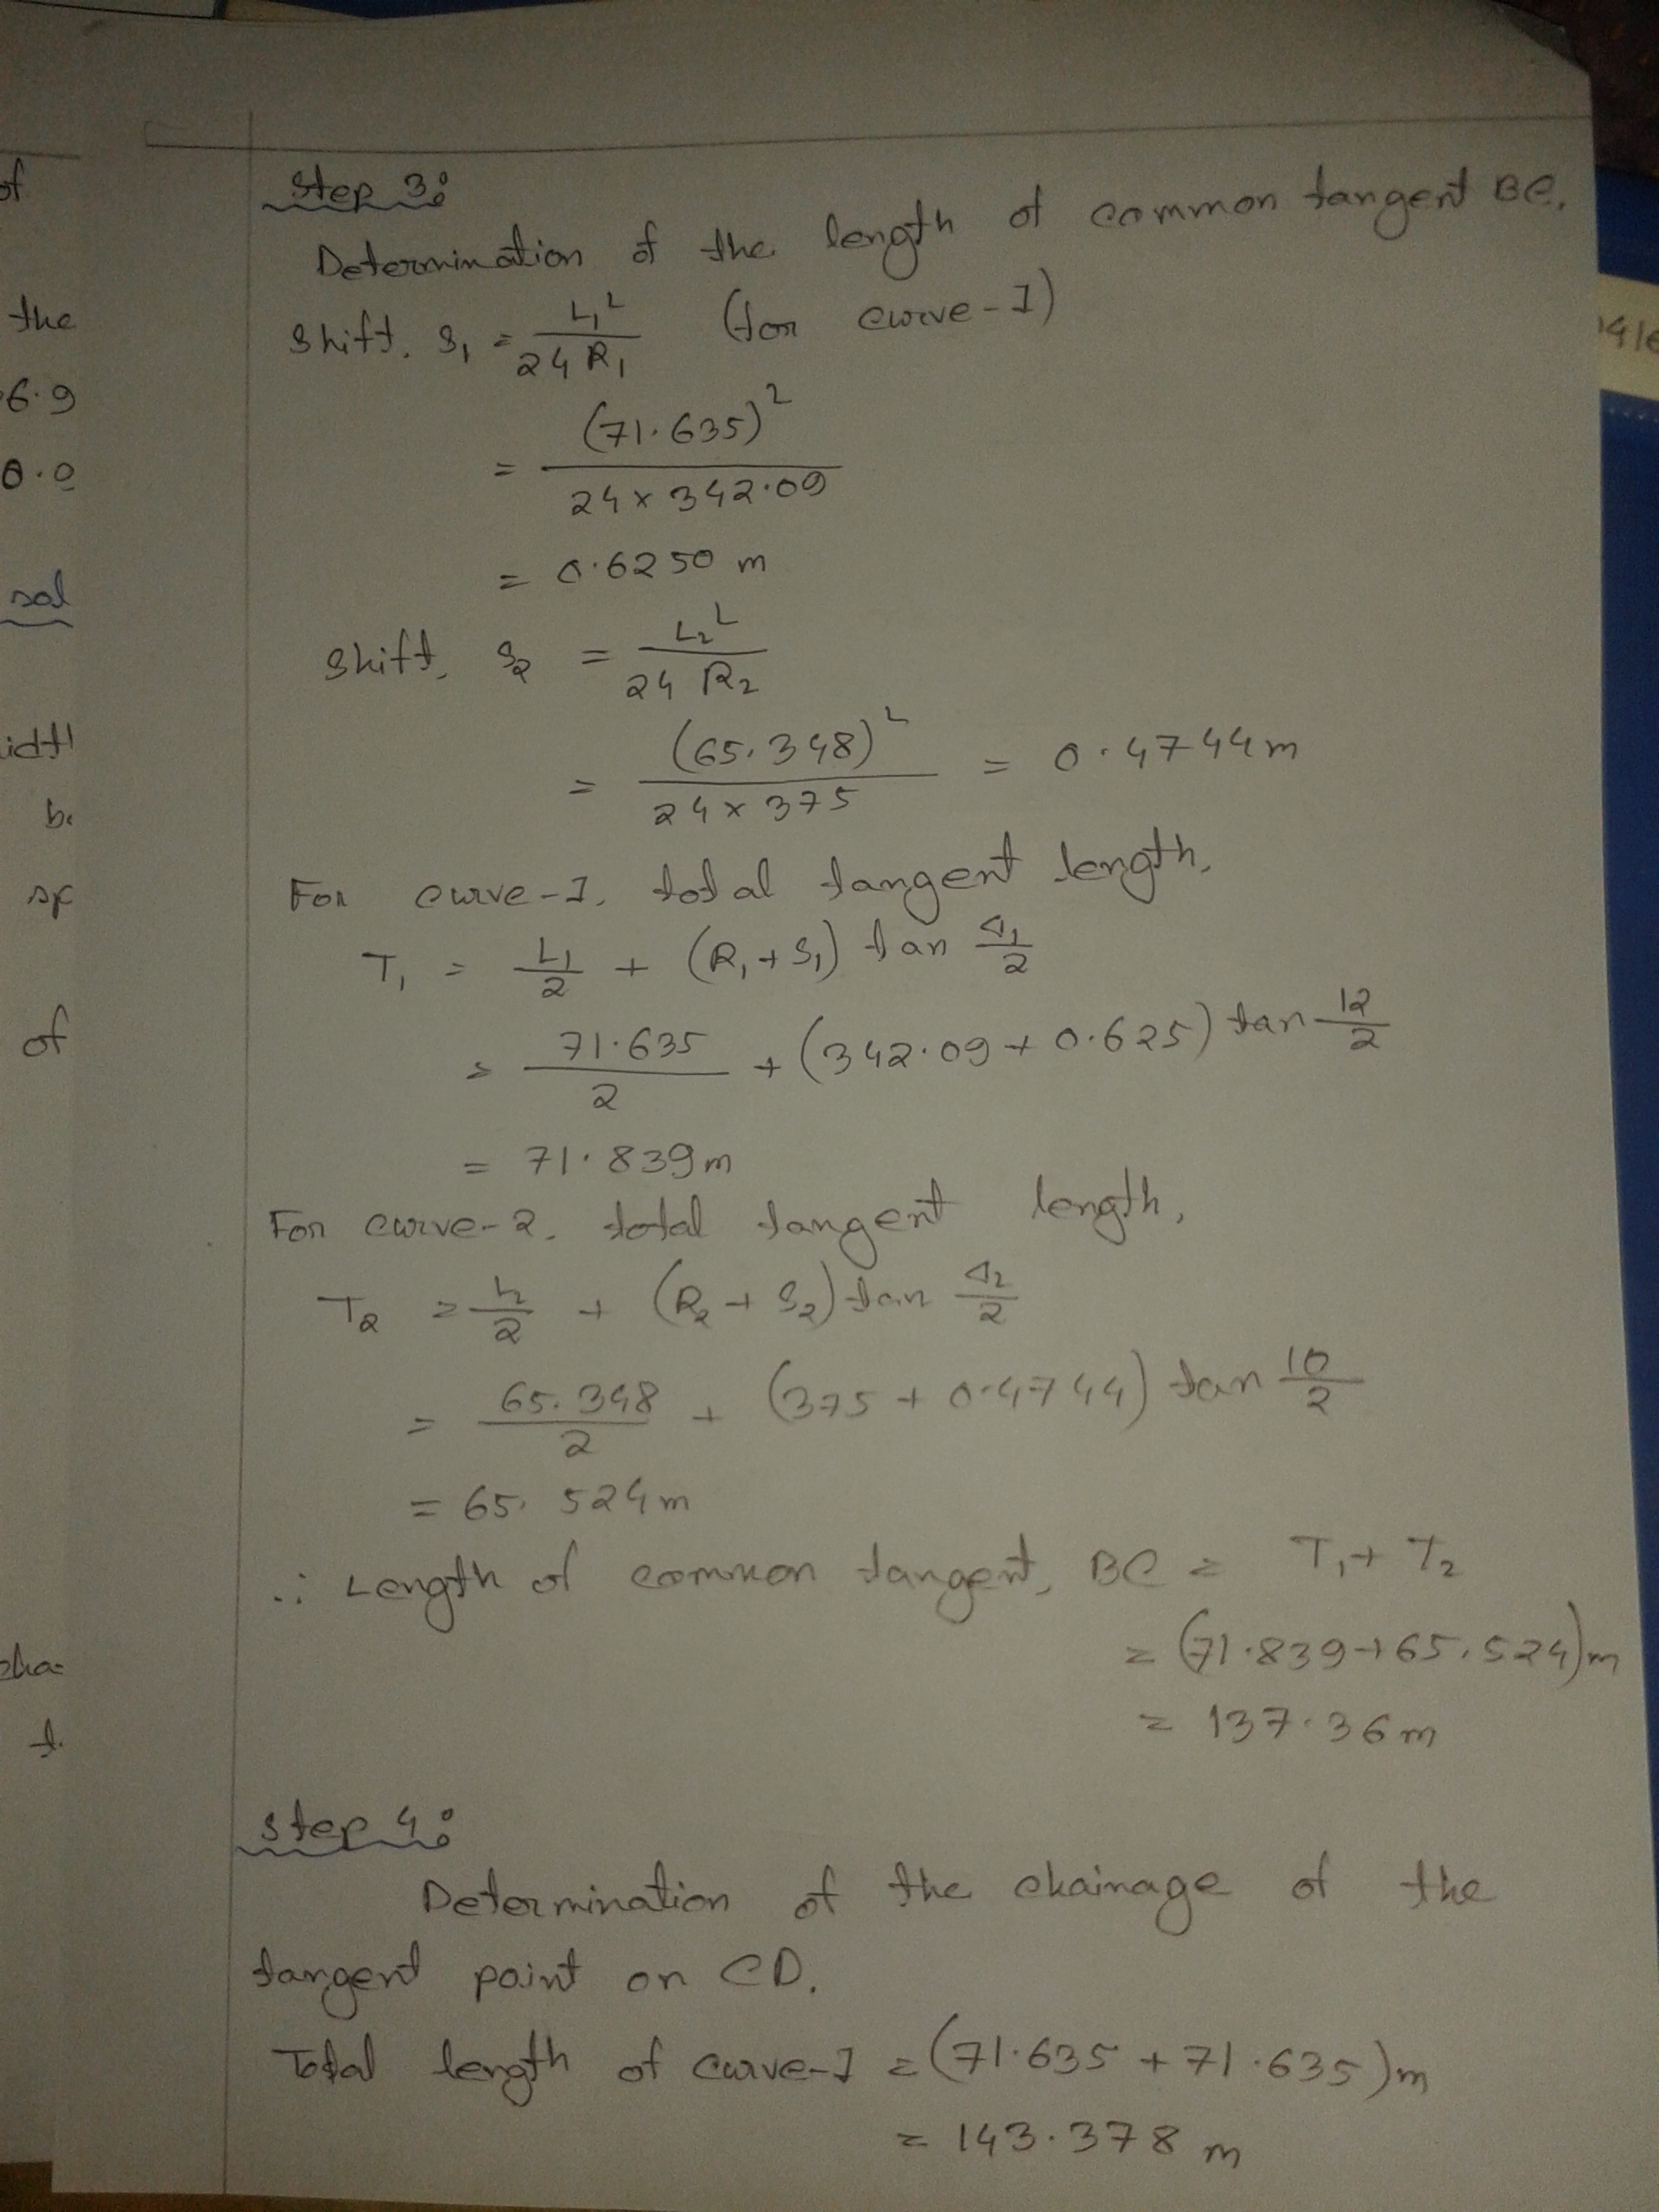 of
the
6.9
0.0
sol
idth
be
sp
of
cha-
t.
Step 3:
Determination of the length of common tangent BC.
Shift, S₁ = L₁² / 24 R₁ (for curve-1)
= (71.635)² / 24 × 342.09
= 0.6250 m
Shift, S₂ = L₂² / 24 R₂
= (65.348)² / 24 × 375 = 0.4744 m
For curve-1, total tangent length,
T₁ = L₁/2 + (R₁ + S₁) tan Δ₁/2
= 71.635/2 + (342.09 + 0.625) tan 12/2
= 71.839 m
For curve-2, total tangent length,
T₂ = L₂/2 + (R₂ + S₂) tan Δ₂/2
= 65.348/2 + (375 + 0.4744) tan 10/2
= 65.524 m
∴ Length of common tangent, BC = T₁ + T₂
= (71.839 + 65.524) m
= 137.36 m
Step 4:
Determination of the chainage of the
tangent point on CD.
Total length of curve-1 = (71.635 + 71.635) m
= 143.378 m